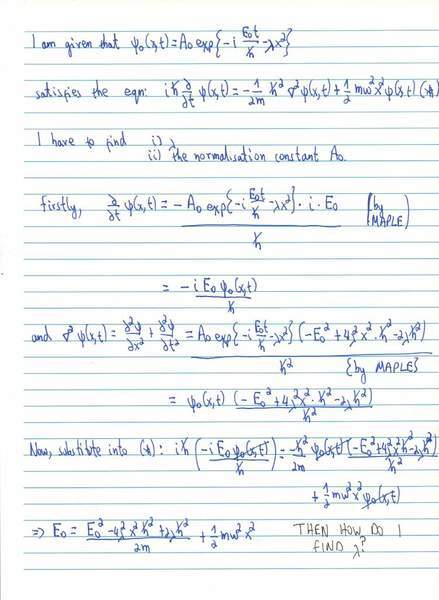 I am given that ψ₀(x,t) = A₀ exp{-i E₀t/ħ - λx²}
satisfies the eqn: iħ ∂/∂t ψ(x,t) = -1/2m ħ² ∇²ψ(x,t) + 1/2 mω²x²ψ(x,t) (*)
I have to find i) λ
ii) the normalisation constant A₀.
Firstly, ∂/∂t ψ(x,t) = -A₀ exp{-i E₀t/ħ - λx²} · i · E₀ / ħ (by MAPLE)
= -i E₀ ψ₀(x,t) / ħ
and ∇²ψ(x,t) = ∂²ψ/∂x² + ∂²ψ/∂t² = A₀ exp{-i E₀t/ħ - λx²} (-E₀² + 4λ²x²·ħ² - 2λħ²) / ħ² {by MAPLE}
= ψ₀(x,t) (-E₀² + 4λ²x²·ħ² - 2λħ²) / ħ²
Now, substitute into (*): iħ (-i E₀ψ₀(x,t) / ħ) = -ħ²/2m ψ₀(x,t) (-E₀² + 4λ²x²ħ² - 2λħ²) / ħ²
+ 1/2 mω²x²ψ₀(x,t)
⇒ E₀ = E₀² - 4λ²x²ħ² + 2λħ² / 2m + 1/2 mω²x² THEN HOW DO I
FIND λ?